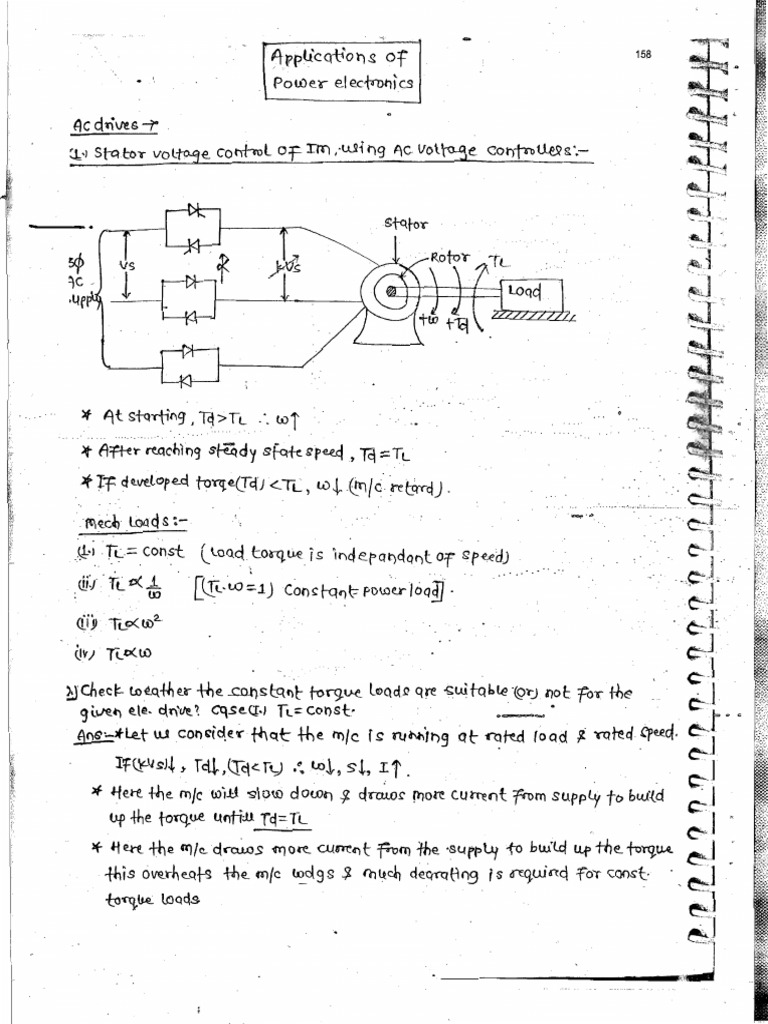 Applications of
Power electronics
158
Ac drives →
(1.) Stator voltage control of Im, using AC voltage controllers:-
Stator
Rotor
TL
3φ
AC
upply
Vs
α
kVs
Load
+ω
+Td
* At starting, Td>TL ∴ ω↑
* After reaching steady state speed, Td=TL
* If developed torqe(Td)<TL, ω↓ (m/c retard).
mech Loads:-
(i.) TL = const (Load torque is indepandant of speed)
(ii) TL ∝ 1/ω [(TL.ω=1) constant power load].
(iii) TL∝ω²
(iv) TL∝ω
2) Check weather the constant torque loads are suitable (or) not for the
given ele. drive? case(I.) TL=const.
Ans:-*Let us consider that the m/c is running at rated load & rated speed.
If(kVs)↓, Td↓,(Td<TL) ∴ ω↓, S↓, I↑.
* Here the m/c will slow down & draws more current from supply to build
up the torque untill Td=TL
* Here the m/c draws more current from the supply to build up the torque
this overheats the m/c wdgs & much dearating is required for const.
torque loads